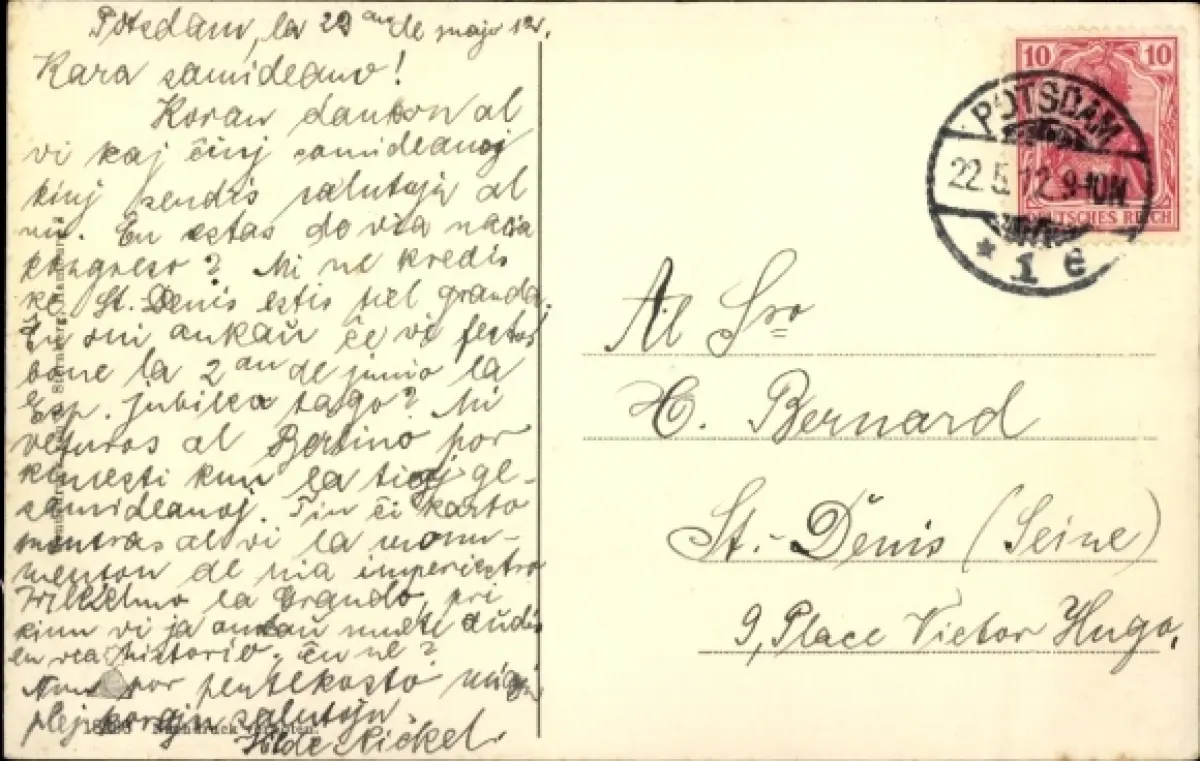 Potsdam, la 22an de majo 12.
Kara samideano!
Koran dankon al
vi kaj ĉiuj samideanoj
kiuj sendis salutojn al
mi. En estas do via nacia
kongreso? Mi ne kredis
ke St. Denis estis tiel granda.
Ĉu mi ankaŭ ĉe vi festos
bone la 2an de junio la
Esp. jubilea tago? Mi
veturos al Berlino por
kunesti kun la tieaj ge-
samideanoj. Tiu ĉi karto
montras al vi la monu-
menton de nia imperiestro
Wilhelmo la Grando, pri
kiun vi ja ankaŭ
en via historio. Ĉu ne?
Nun por pentekosto miajn
plej korajn salutojn
Hilde Nickel.
Nachdruck verboten.
10 10
DEUTSCHES REICH
POTSDAM
22.5.12.9-10N
* 1 e
Al Sro
H. Bernard
St.-Denis (Seine)
9, Place Victor Hugo,